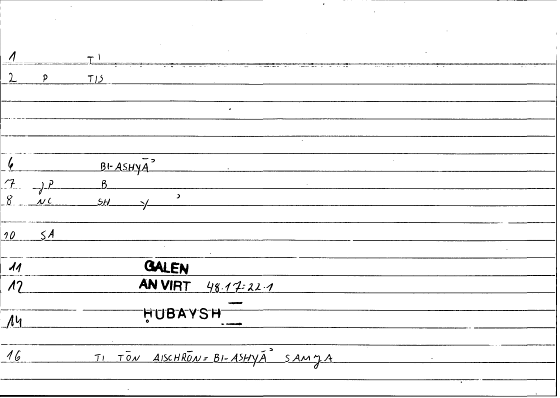 1 TI
2 P TIS
6 BI-ASHYĀʾ
7 JP B
8 NC SH Y ʾ
10 SA
11 GALEN
12 AN VIRT 48.17:22.1
14 ḤUBAYSH
16 TI TŌN AISCHRŌN = BI-ASHYĀʾ SAMJA